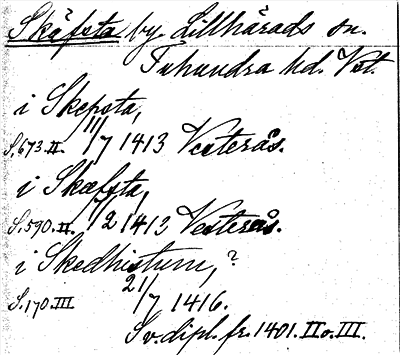 Skäfsta by. Lillhärads sn.
Tuhundra hd. Vst.
i Skepsta,
S. 673. II. 11/7 1413 Vesterås.
i Skæfsta,
S. 590. II. /2 1413 Vesterås.
i Skedhistum, ?
S. 170. III 21/7 1416.
Sv. dipl. fr. 1401. II o. III.